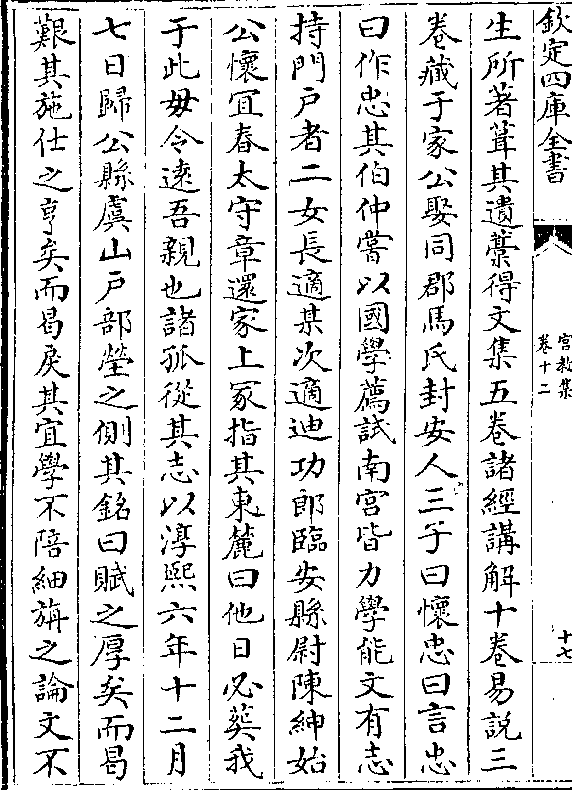 欽定四庫全書
宫教集
卷十二
十七
生所著葺其遺藁得文集五卷諸經講解十卷易説三
卷藏于家公娶同郡馬氏封安人三子曰懷忠曰言忠
曰作忠其伯仲嘗以國學薦試南宫皆力學能文有志
持門户者二女長適某次適迪功郎臨安縣尉陳紳始
公懷宜春太守章還家上冢指其東麓曰他日必葬我
于此毋令逺吾親也諸孤從其志以淳熙六年十二月
七日歸公縣虞山户部塋之側其銘曰賦之厚矣而曷
艱其施仕之亨矣而曷戾其宜學不陪細旃之論文不